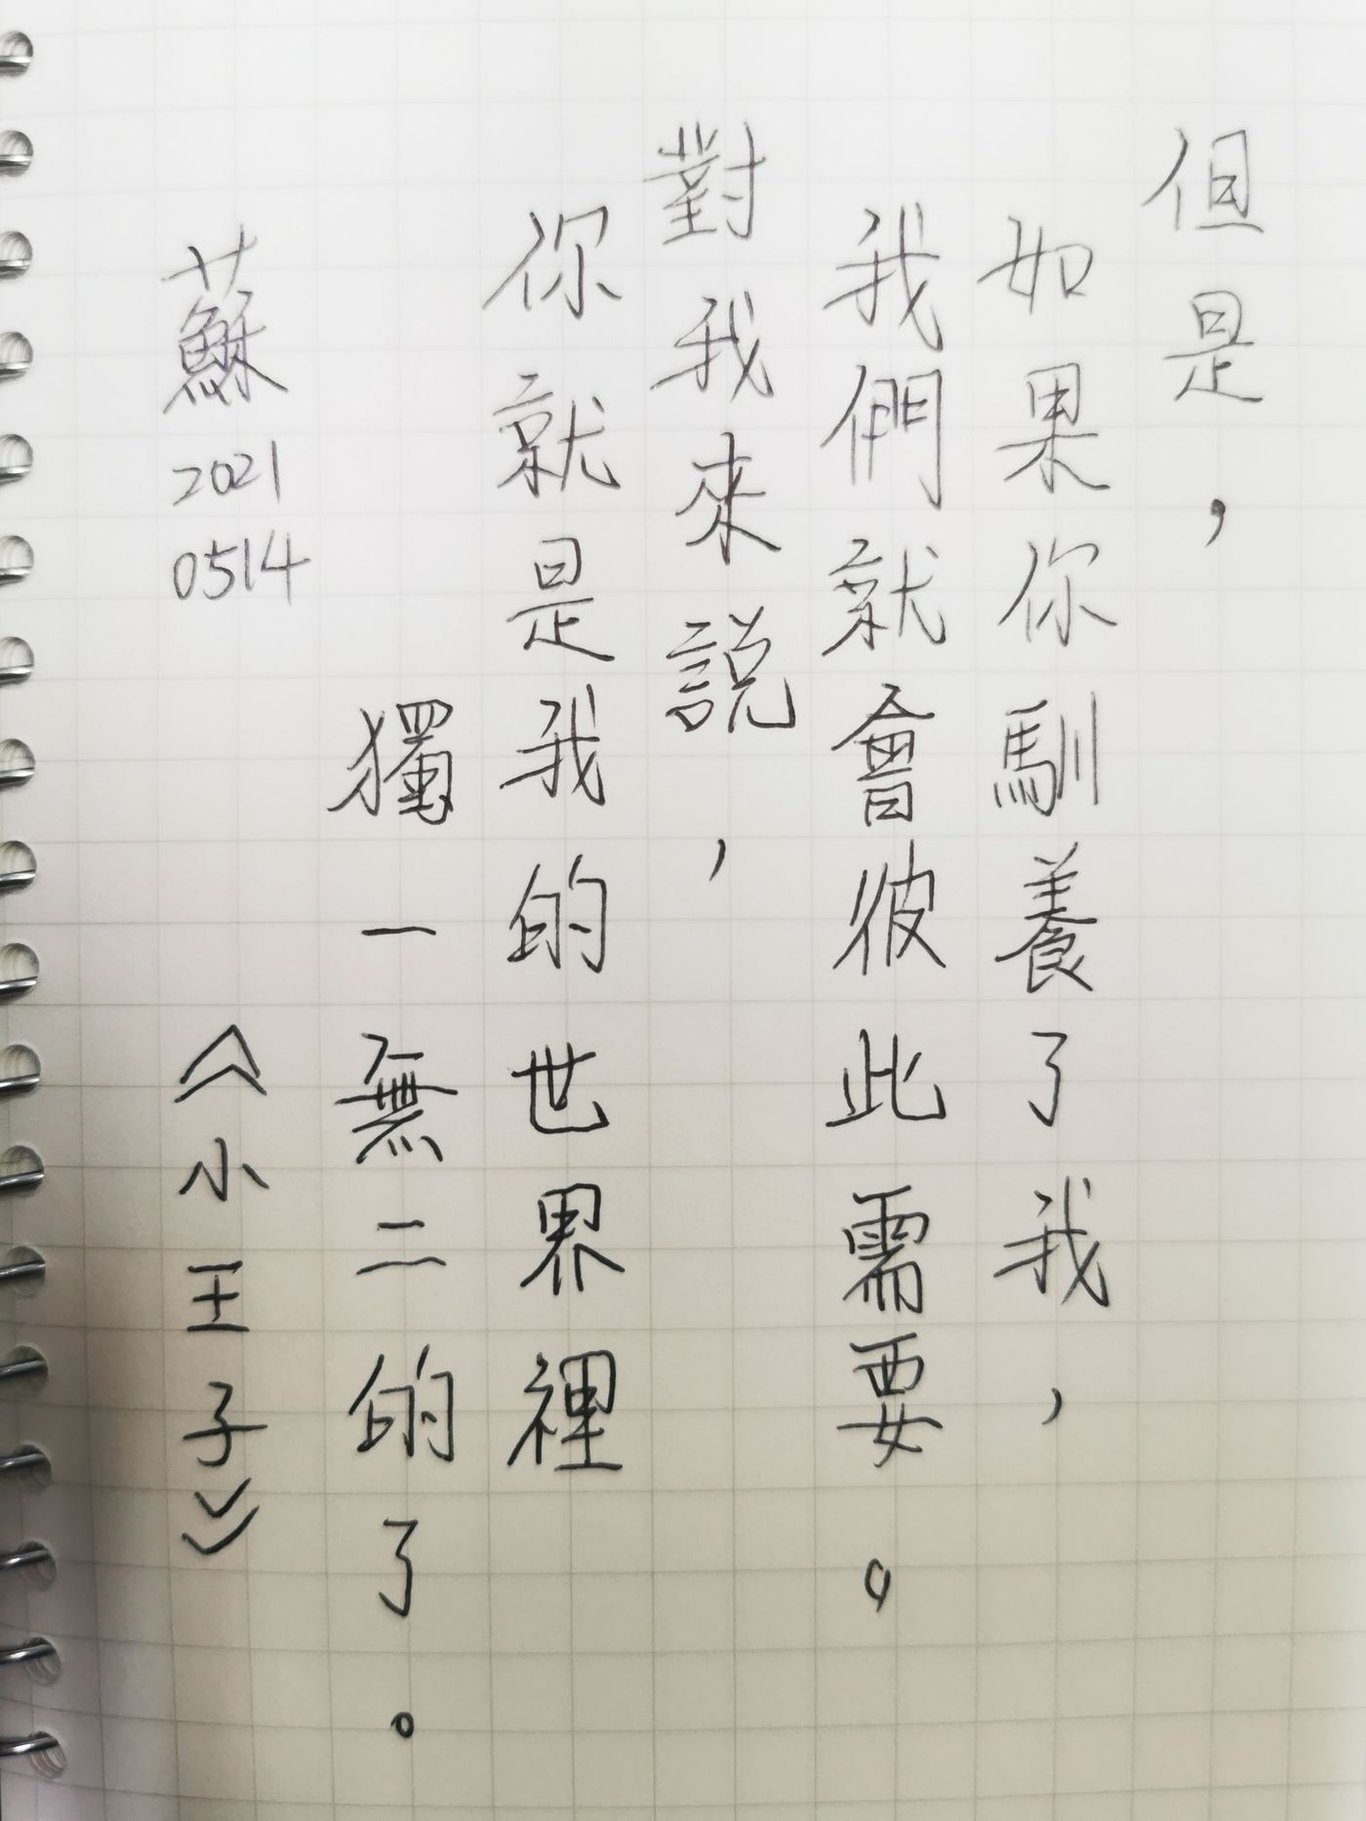 但是，
如果你馴養了我，
我們就會彼此需要。
對我來説，
你就是我的世界裡
獨一無二的了。
《小王子》
蘇
2021
0514